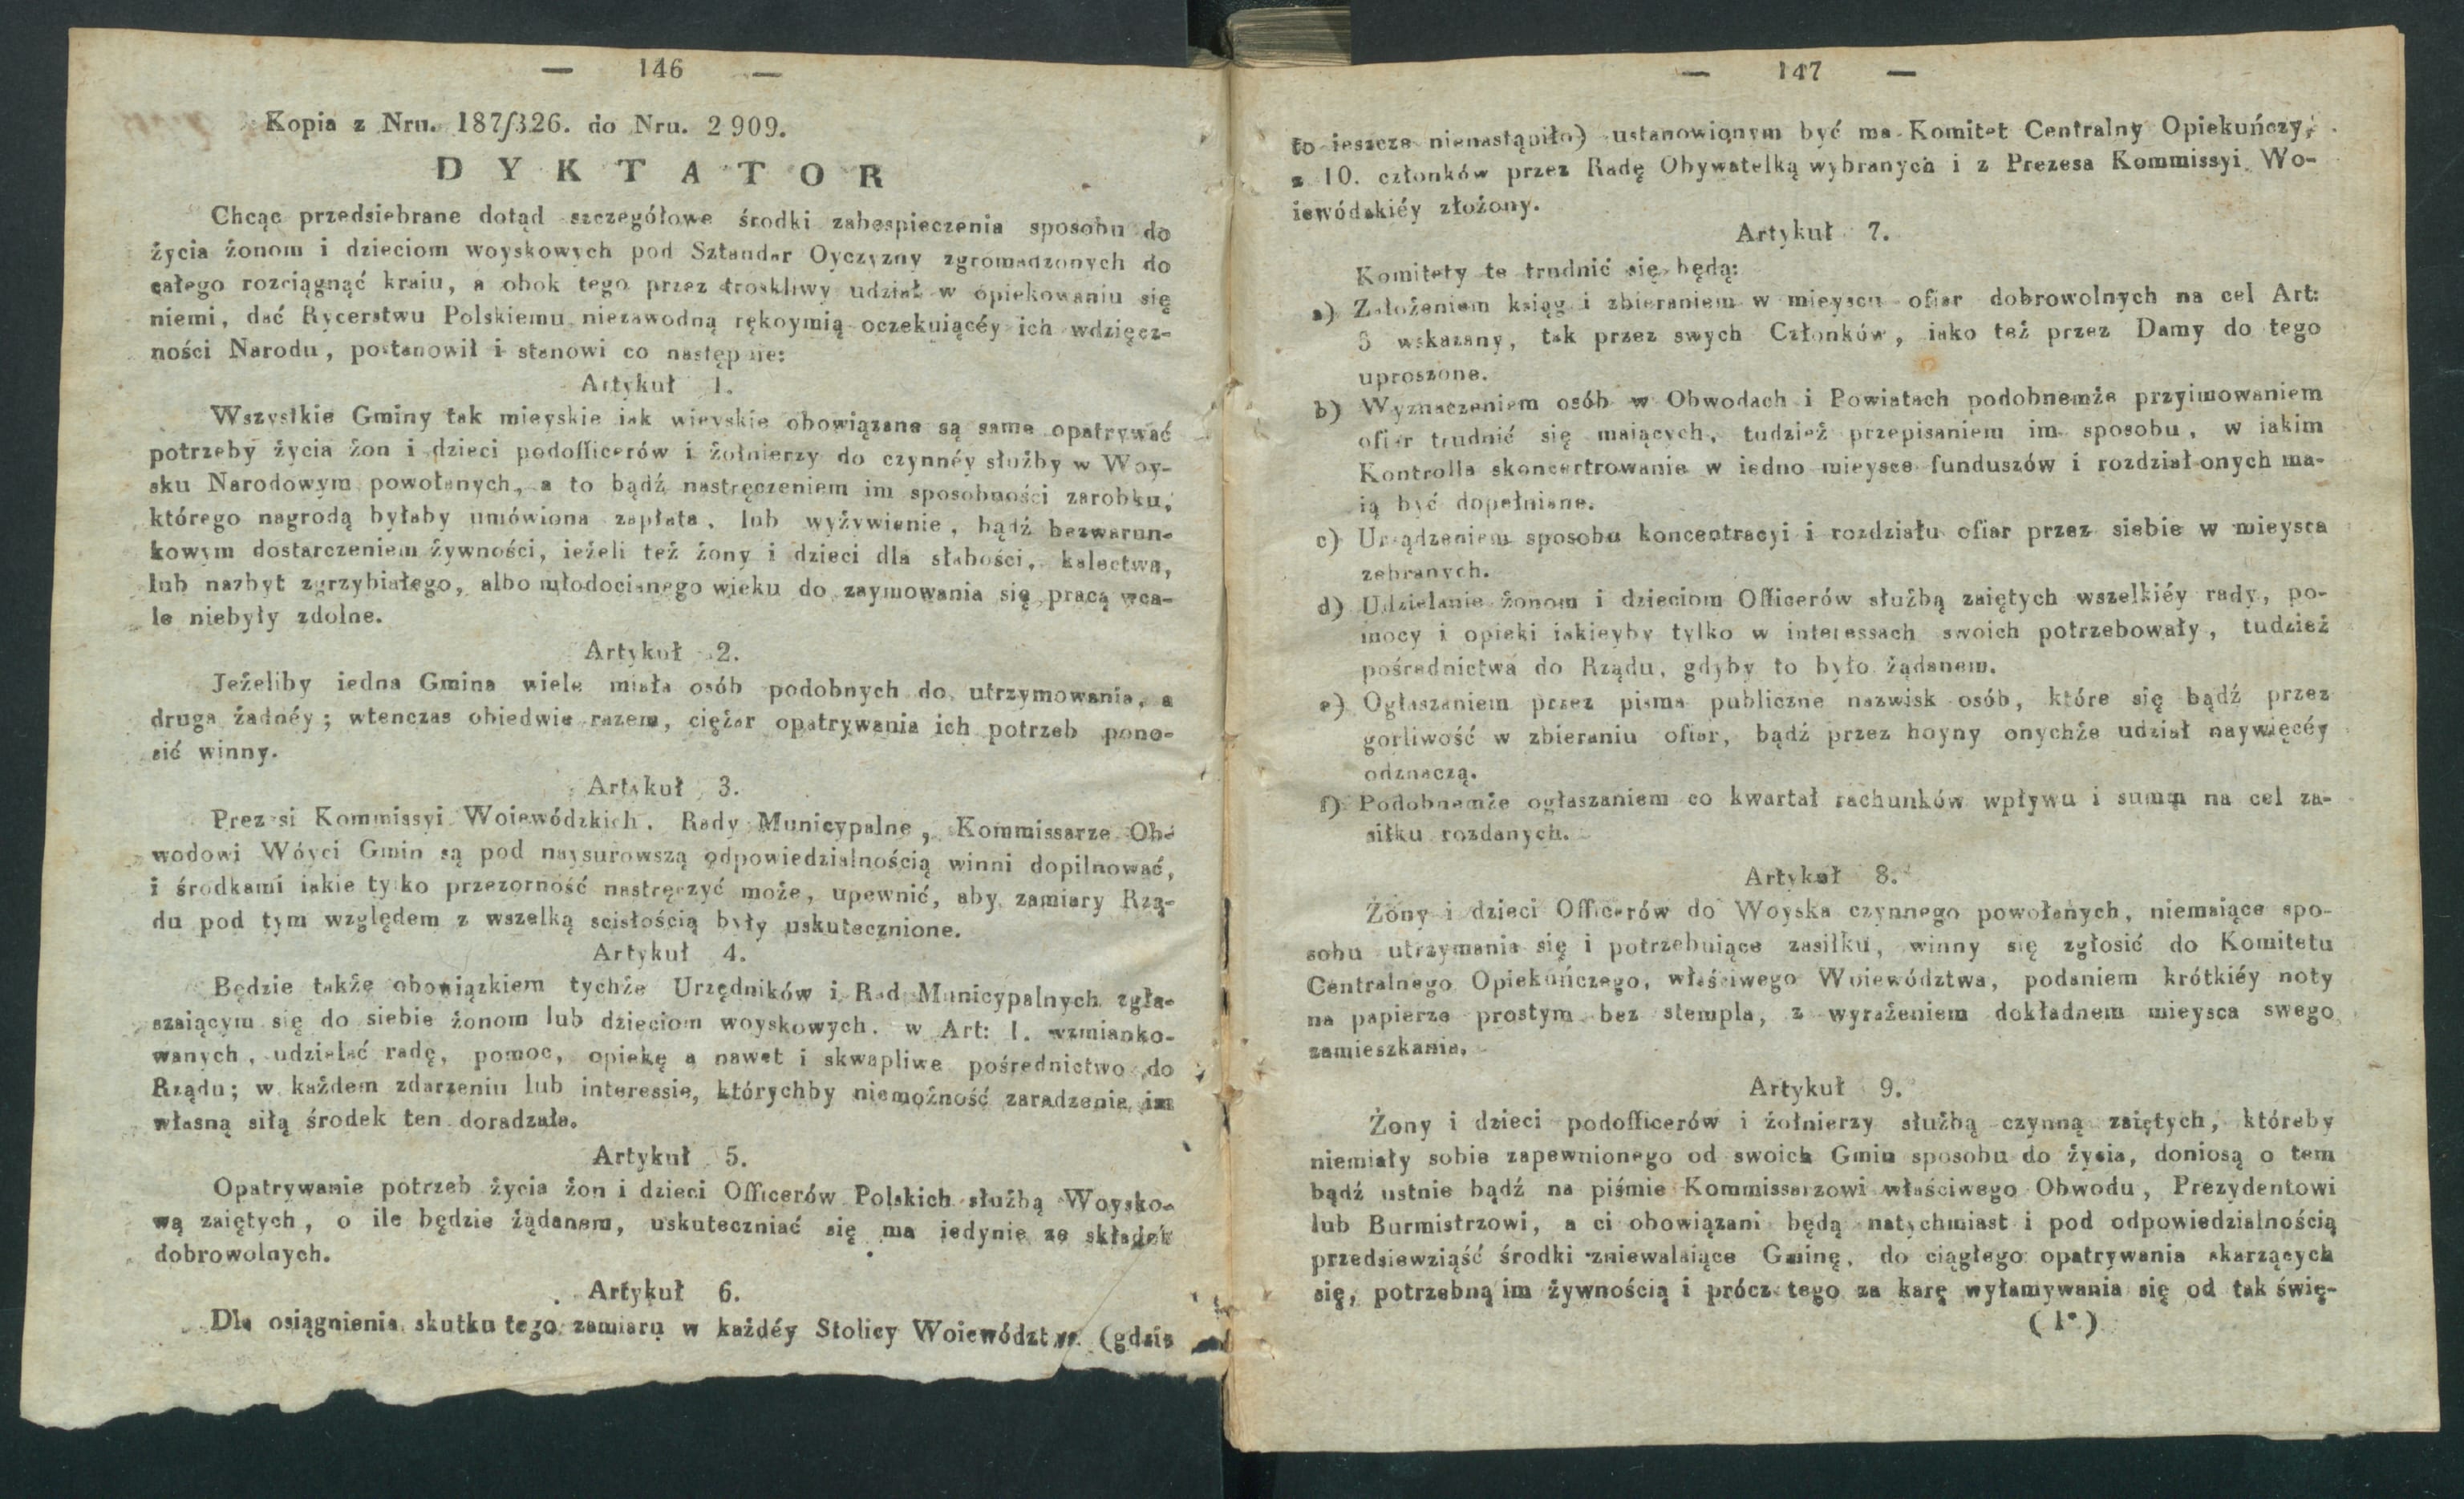 — 146 —
Kopia z Nru. 187/326. do Nru. 2909.
DYKTATOR
Chcąc przedsiebrane dotąd szczegółowe środki zabespieczenia sposobu do
życia żonom i dzieciom woyskowych pod Sztandar Oyczyzny zgromadzonych do
całego rozciągnąć kraiu, a obok tego przez troskliwy udział w opiekowaniu się
niemi, dać Rycerstwu Polskiemu niezawodną rękoymią oczekuiącéy ich wdzięcz-
ności Narodu, postanowił i stanowi co następuie:
Artykuł 1.
Wszystkie Gminy tak mieyskie iak wieyskie obowiązane są same opatrywać
potrzeby życia żon i dzieci podofficerów i żołnierzy do czynnéy służby w Woy-
sku Narodowym powołanych, a to bądź nastręczeniem im sposobności zarobku,
którego nagrodą byłaby umówiona zapłata, lub wyżywienie, bądź bezwarun-
kowym dostarczeniem żywności, ieżeli też żony i dzieci dla słabości, kalectwa,
lub nazbyt zgrzybiałego, albo młodocianego wieku do zaymowania się pracą wca-
le niebyły zdolne.
Artykuł 2.
Jeżeliby iedna Gmina wiele miała osób podobnych do utrzymowania, a
druga żadnéy; wtenczas obiedwie razem, ciężar opatrywania ich potrzeb pono-
sić winny.
Artykuł 3.
Prezesi Kommissyi Woiewódzkich. Rady Municypalne, Kommissarze Ob-
wodowi Wóyci Gmin są pod naysurowszą odpowiedzialnością winni dopilnować,
i środkami iakie tylko przezorność nastręczyć może, upewnić, aby zamiary Rzą-
du pod tym względem z wszelką scisłością były uskutecznione.
Artykuł 4.
Będzie także obowiązkiem tychże Urzędników i Rad Municypalnych zgła-
szaiącym się do siebie żonom lub dzieciom woyskowych. w Art: 1. wzmianko-
wanych, udzielać radę, pomoc, opiekę a nawet i skwapliwe pośrednictwo do
Rządu; w każdem zdarzeniu lub interessie, którychby niemożność zaradzenia im
własną siłą środek ten doradzała.
Artykuł 5.
Opatrywanie potrzeb życia żon i dzieci Officerów Polskich służbą Woysko-
wą zaiętych, o ile będzie żądanem, uskuteczniać się ma iedynie ze składek
dobrowolnych.
Artykuł 6.
Dla osiągnienia skutku tego zamiaru w każdéy Stolicy Woiewództw. (gdzie
— 147 —
to ieszcze nienastąpiło) ustanowionym być ma Komitet Centralny Opiekuńczy,
z 10. członków przez Radę Obywatelką wybranych i z Prezesa Kommissyi Wo-
iewódzkiéy złożony.
Artykuł 7.
Komitety te trudnić się będą:
a) Założeniem ksiąg i zbieraniem w mieyscu ofiar dobrowolnych na cel Art:
wskazany, tak przez swych Członków, iako też przez Damy do tego
uproszone.
b) Wyznaczeniem osób w Obwodach i Powiatach podobnemże przyimowaniem
ofiar trudnić się maiących, tudzież przepisaniem im sposobu, w iakim
Kontrolla skoncertrowanie w iedno mieysce funduszów i rozdział onych ma-
ią być dopełniane.
c) Urządzeniem sposobu koncentracyi i rozdziału ofiar przez siebie w mieysca
zebranych.
d) Udzielanie żonom i dzieciom Officerów służbą zaiętych wszelkiéy rady, po-
mocy i opieki iakieyby tylko w interessach swoich potrzebowały, tudzież
pośrednictwa do Rządu, gdyby to było żądanem.
e) Ogłaszaniem przez pisma publiczne nazwisk osób, które się bądź przez
gorliwość w zbieraniu ofiar, bądź przez hoyny onychże udział naywięcéy
odznaczą.
f) Podobnemże ogłaszaniem co kwartał rachunków wpływu i summ na cel za-
siłku rozdanych.
Artykuł 8.
Żony i dzieci Officerów do Woyska czynnego powołanych, niemaiące spo-
sobu utrzymania się i potrzebuiące zasiłku, winny się zgłosić do Komitetu
Centralnego Opiekuńczego, właściwego Woiewództwa, podaniem krótkiéy noty
na papierze prostym bez stempla, z wyrażeniem dokładnem mieysca swego
zamieszkania.
Artykuł 9.
Żony i dzieci podofficerów i żołnierzy służbą czynną zaiętych, któreby
niemiały sobie zapewnionego od swoich Gmin sposobu do życia, doniosą o tem
bądź ustnie bądź na piśmie Kommissarzowi właściwego Obwodu, Prezydentowi
lub Burmistrzowi, a ci obowiązani będą natychmiast i pod odpowiedzialnością
przedsiewziąść środki zniewalaiące Gminę, do ciągłego opatrywania skarzących
się, potrzebną im żywnością i prócz tego za karę wyłamywania się od tak świę-
(1*)